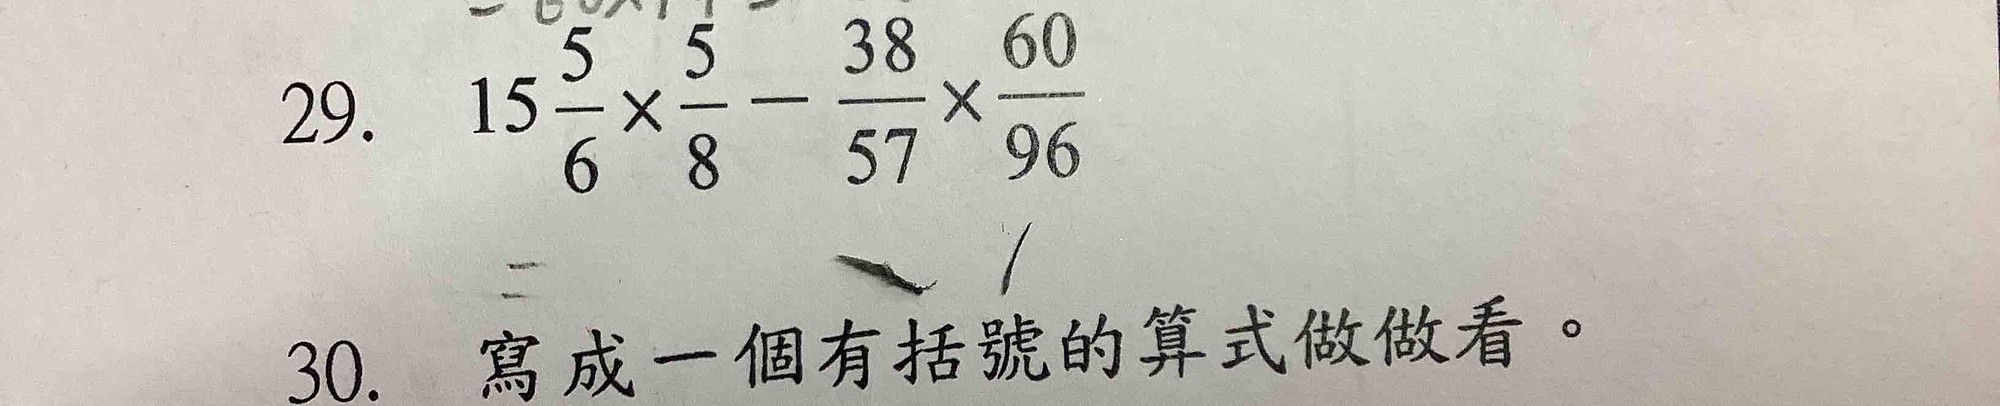 29. 15 5/6 × 5/8 − 38/57 × 60/96
=
30. 寫成一個有括號的算式做做看。